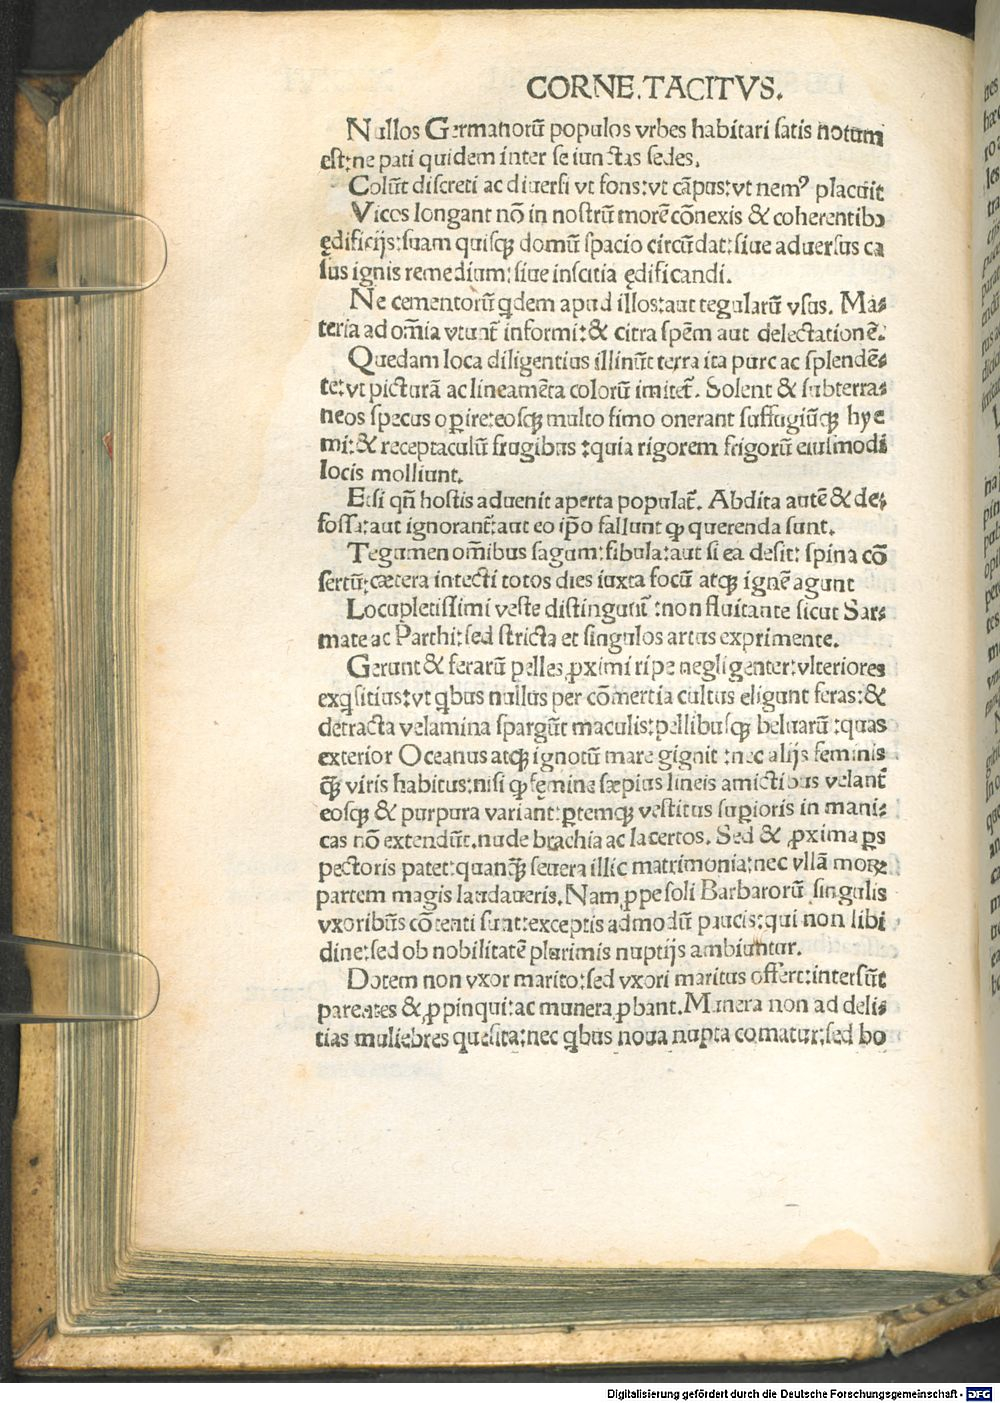 CORNE.TACITVS.
Nullos Germanorū populos vrbes habitari satis notum
est:ne pati quidem inter se iunctas sedes.
Colūt discreti ac diuersi vt fons:vt cāpus:vt nemꝰ placuit
Vicos longant nō in nostrū morē cōnexis & coherentibꝰ
ędificijs:suam quisq̨ domū spacio circūdat:siue aduersus ca
sus ignis remedium:siue inscitia ędificandi.
Ne cementorū qdem apud illos:aut tegularū vsus. Ma⸗
teria ad om̄ia vtunt̄ informi:& citra spēm aut delectationē.
Quedam loca diligentius illinūt terra ita pure ac splendē⸗
te:vt picturā ac lineamēta colorū imitet̄. Solent & subterra⸗
neos specus oꝑire:eosq̨ multo fimo onerant suffugiūq̨ hye
mi:& receptaculū frugibus :quia rigorem frigorū eiusmodi
locis molliunt.
Etsi qn̄ hostis aduenit aperta populat̄. Abdita autē & de⸗
fossa:aut ignorant̄:aut eo ip̄o fallunt ꝙ querenda sunt.
Tegumen om̄ibus sagum:fibula:aut si ea desit: spina cō
sertū:cætera intecti totos dies iuxta focū atq̨ ignē agunt
Locupletissimi veste distingunt̄ :non fluitante sicut Sar⸗
mate ac Parthi:sed stricta et singulos artus exprimente.
Gerunt & ferarū pelles ꝓximi ripe negligenter:vlteriores
exqsitius:vt qbus nullus per cōmertia cultus eligunt feras:&
detracta velamina spargūt maculis:pellibusq̨ beluarū :quas
exterior Oceanus atq̨ ignotū mare gignit :nec alijs feminis
q̄ȝ viris habitus:nisi ꝙ fęmine sæpius lineis amictibus velant̄
eosq̨ & purpura variant:ꝑtemq̨ vestitus suꝑioris in mani⸗
cas nō extendūt.nude brachia ac lacertos. Sed & ꝓxima ꝑs
pectoris patet:quanq̄ȝ seuera illic matrimonia:nec vllā moꝝ
partem magis laudaueris. Nam ꝓpe soli Barbarorū singulis
vxoribus cōtenti sunt:exceptis admodū paucis:qui non libi
dine:sed ob nobilitatē plurimis nuptijs ambiuntur.
Dotem non vxor marito:sed vxori maritus offert:intersūt
parentes & ꝓpinqui:ac munera ꝓbant. Munera non ad deli⸗
tias muliebres quesita:nec qbus noua nupta comatur:sed bo
Digitalisierung gefördert durch die Deutsche Forschungsgemeinschaft - DFG